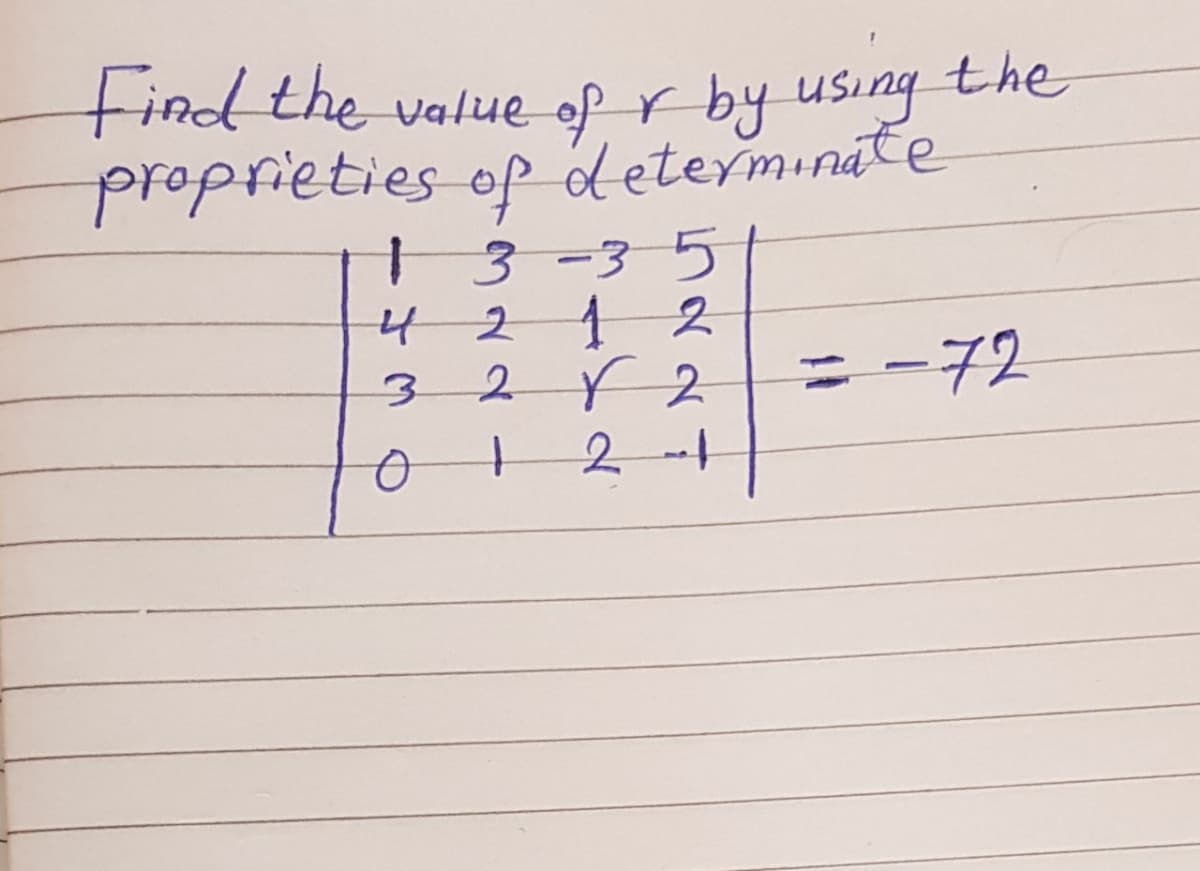 Find the value of r by using the
proprieties of determinate
1 3 -3 5
4 2 1 2
3 2 r 2 = -72
0 1 2 -1